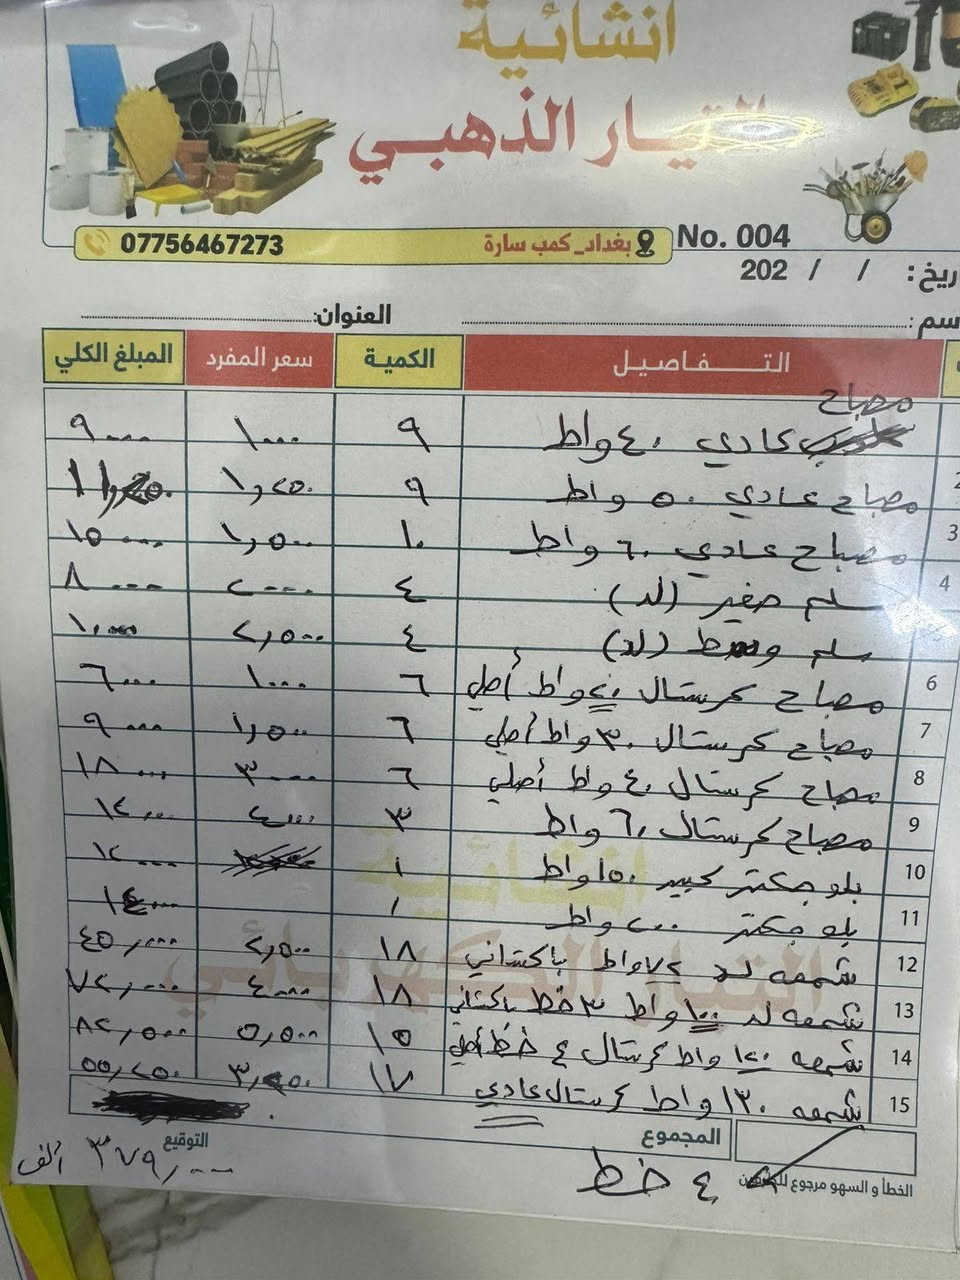 انشائية
التيار الذهبي
بغداد_ كمب سارة 07756467273
No. 004
202 / / :ريخ
سم: العنوان:
التفاصيل الكمية سعر المفرد المبلغ الكلي
مصباح
عادي ٤٠ واط ٩ ١٠٠٠ ٩٠٠٠
2 مصباح عادي ٥٠ واط ٩ ١,٢٥٠
3 مصباح عادي ٦٠ واط ١٠ ١,٥٠٠ ١٥٠٠٠
4 سلم صغير (لد) ٤ ٢٠٠٠ ٨٠٠٠
سلم وسط (لد) ٤ ٢,٥٠٠ ١٠,٠٠٠
6 مصباح كرستال ٢٠ واط أصلي ٦ ١٠٠٠ ٦٠٠٠
7 مصباح كرستال ٣٠ واط أصلي ٦ ١,٥٠٠ ٩٠٠٠
8 مصباح كرستال ٤٠ واط أصلي ٦ ٣٠٠٠ ١٨٠٠٠
9 مصباح كرستال ٦٠ واط ٣ ٤,٠٠٠ ١٢,٠٠٠
10 بلوجكتر كبير ١٥٠ واط ١ ١٢٠٠٠
11 بلوجكتر ٢٠٠ واط ١ ١٤٠٠٠
12 شمعه لد ٧٢ واط باكستاني ١٨ ٢,٥٠٠ ٤٥,٠٠٠
13 شمعه لد ١٠٠ واط ٣ خط باكستاني ١٨ ٤٠٠٠ ٧٢,٠٠٠
14 شمعه ١٢٠ واط كرستال ٤ خط أصلي ١٥ ٥,٥٠٠ ٨٢,٥٠٠
15 شمعه ١٣٠ واط كرستال عادي ١٧ ٣,٢٥٠ ٥٥,٢٥٠
المجموع
٤ خط
التوقيع
٣٧٩,٠٠٠ الف
الخطأ و السهو مرجوع للطرفين
انشائية
التيار الكهربائي